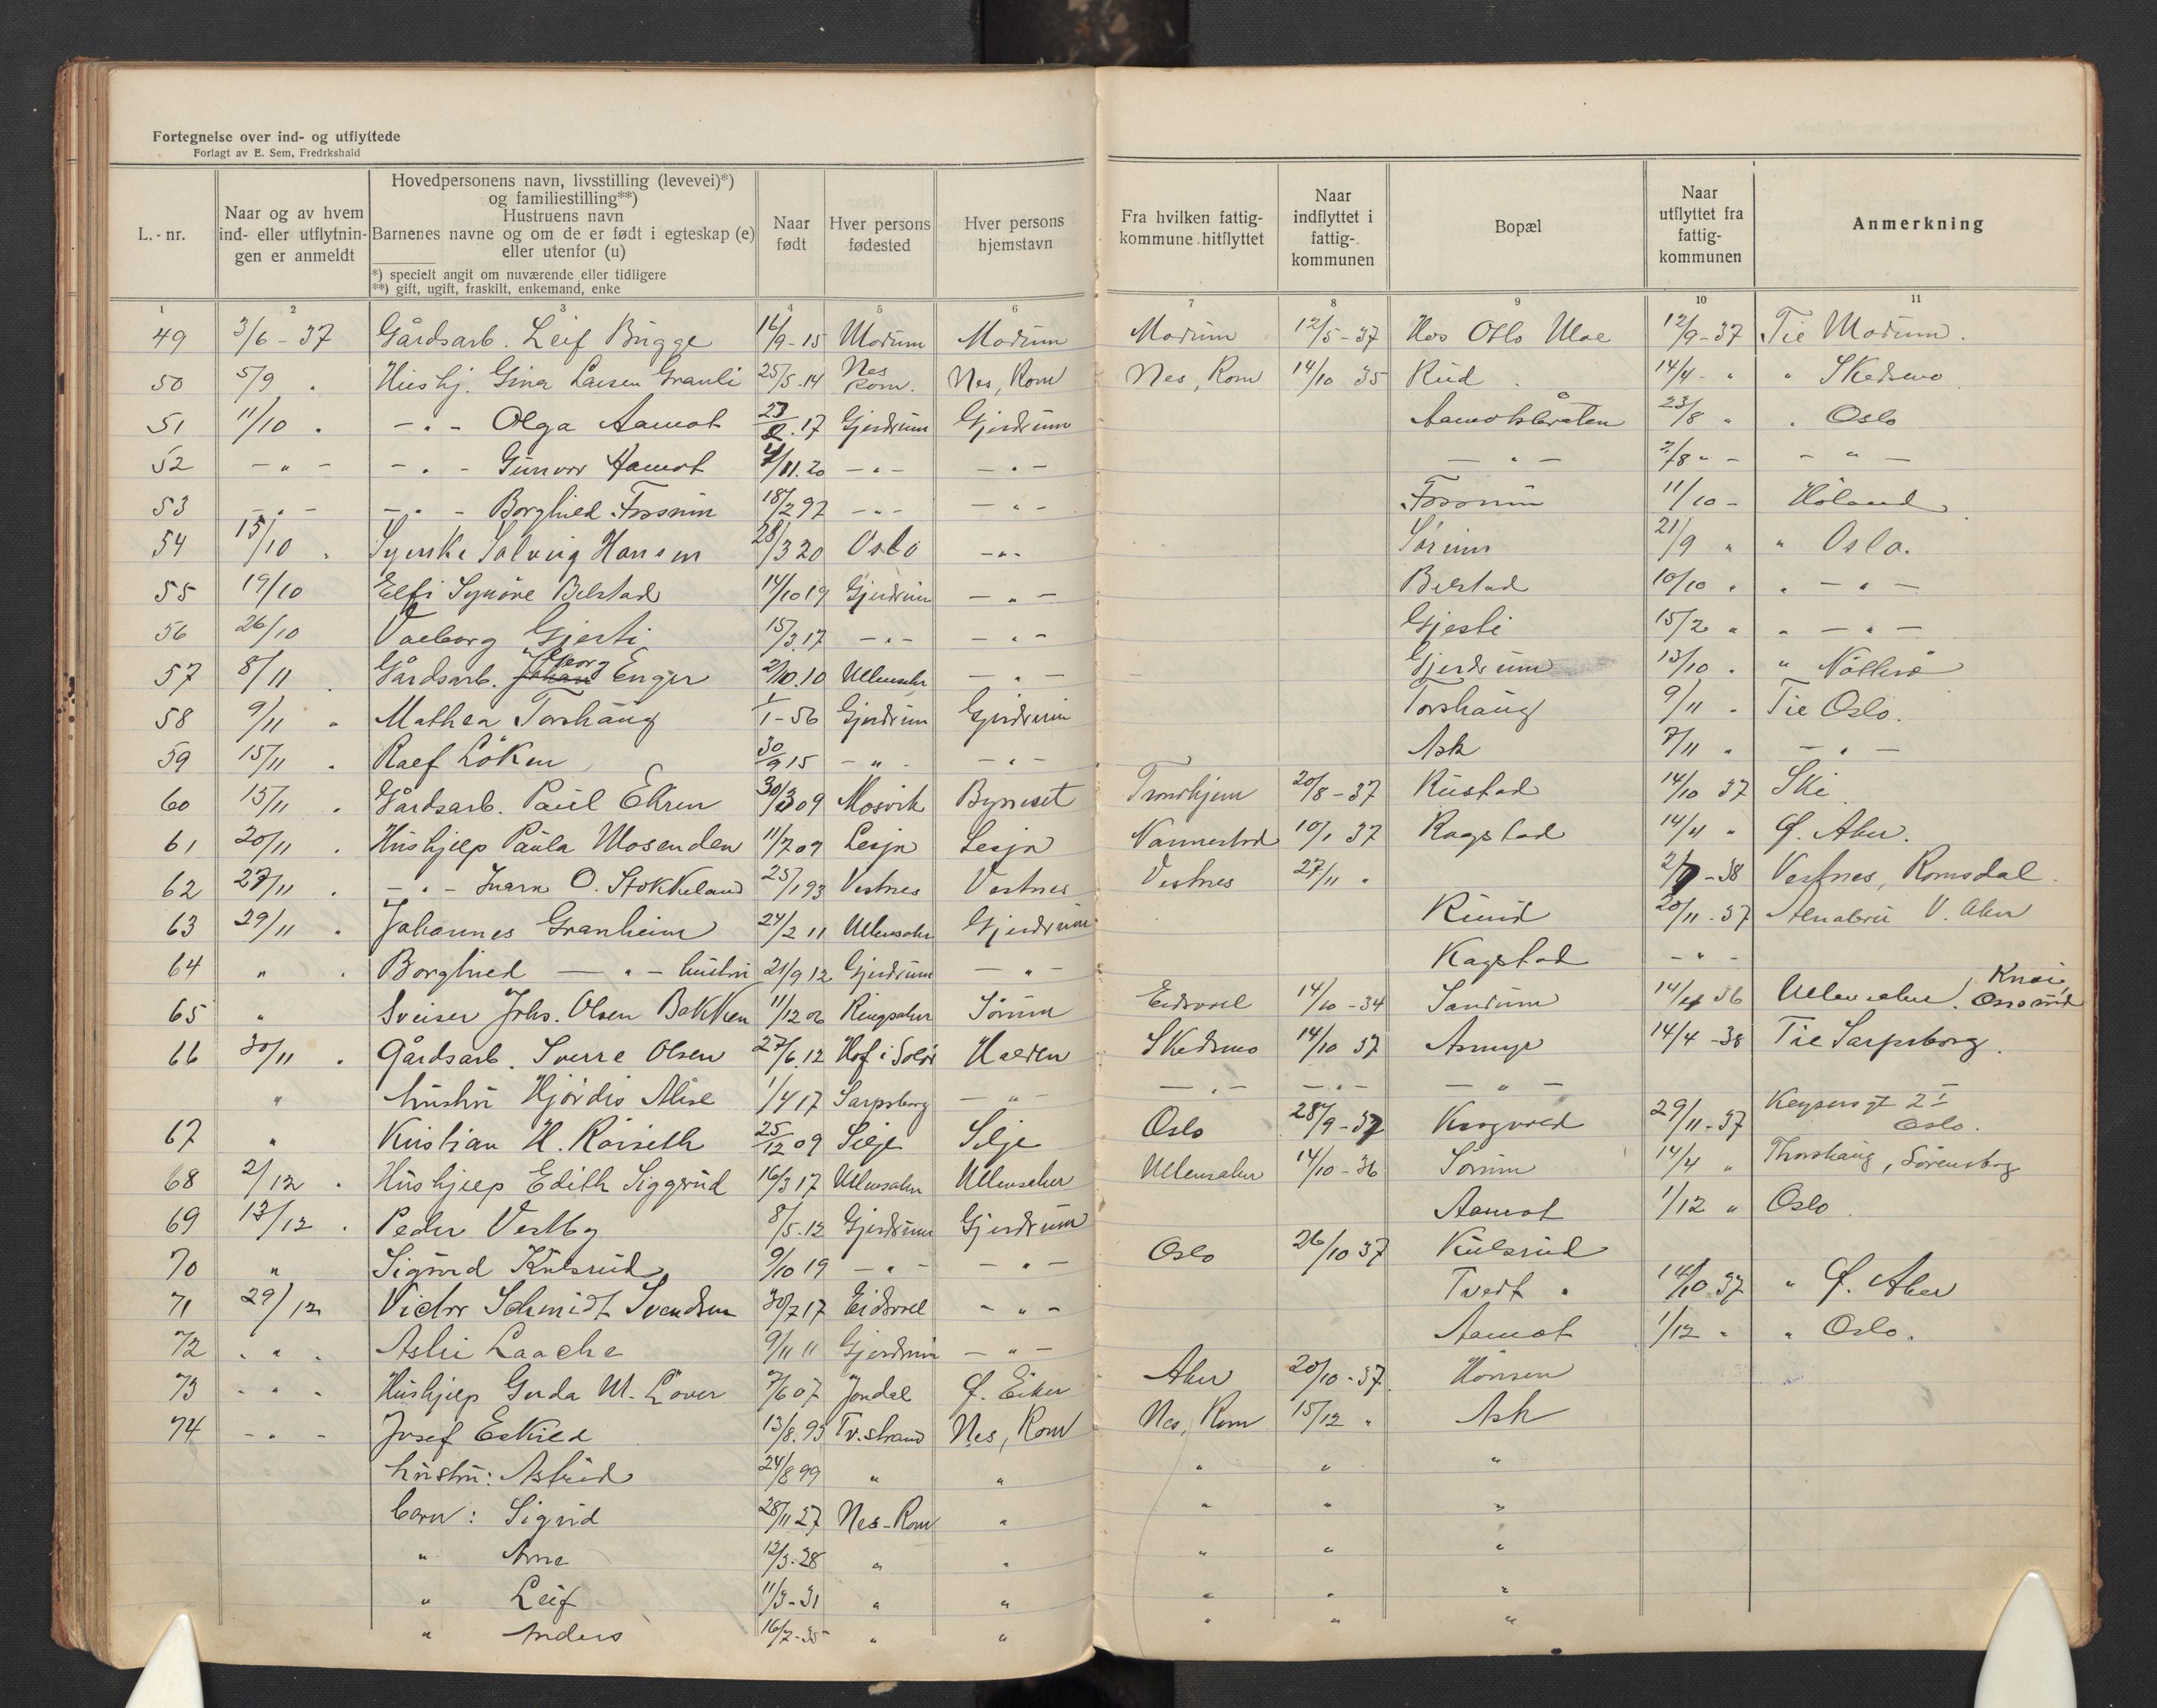 Fortegnelse over ind- og utflyttede
Forlagt av E. Sem, Fredrkshald
L.-nr. | Naar og av hvem ind- eller utflytningen er anmeldt | Hovedpersonens navn, livsstilling (levevei)*) og familiestilling**) Hustruens navn Barnenes navne og om de er født i egteskap (e) eller utenfor (u) *) specielt angit om nuværende eller tidligere **) gift, ugift, fraskilt, enkemand, enke | Naar født | Hver persons fødested | Hver persons hjemstavn | Fra hvilken fattigkommune hitflyttet | Naar indflyttet i fattig-kommunen | Bopæl | Naar utflyttet fra fattig-kommunen | Anmerkning
1 2 3 4 5 6 7 8 9 10 11
49 3/6-37 Gårdsarb. Leif Bugge 16/9-15 Modum Modum Modum 12/5-37 Hos Otto Moe 12/9-37 Til Modum.
50 5/9 " Hushj. Gina Larsen Granli 25/5.14 Nes Rom. Nes, Rom Nes, Rom 14/10 35 Rud 14/4 - " " Skedsmo
51 11/10 " - " - Olga Aamot 17 Gjerdrum Gjerdrum Aamotbråten 23/8 " " Oslo
52 - " - - " - Gunvor Aamot /11.20 - " - - " - - " - /8 " - - " -
53 - " - - " - Borghild Fossum 18/2 97 - " - - " - Fossum 11/10 - Höland
54 15/10 " Syerske Solveig Hansen 28/3 20 Oslo - " - Sörum 21/9 " " Oslo.
55 19/10 Elfi Synöve Belstad 14/10 19 Gjerdrum - " - Belstad 10/10 " " - " -
56 26/10 Valborg Gjesti 15/3.17 - " - - " - Gjesti 15/2 " " - " -
57 8/11 " Gårdsarb. Johan Georg Enger 2/10.10 Ullensaker - " - Gjerdrum 13/10 " " Nötterö
58 9/11 " Mathea Torshaug 1/1-56 Gjerdrum Gjerdrum Torshaug 9/11 " Til Oslo.
59 15/11 " Ralf Löken 30/9 15 - " - - " - Ask 7/11 " - " -
60 15/11 " Gårdsarb. Paul Ekren 30/3 09 Mosvik Byneset Trondhjem 20/8-37 Rustad 14/10 37 Ski
61 20/11 " Hushjelp Paula Mosenden 11/7 09 Lesja Lesja Nannestad 10/1 37 Ragstad 14/4 " Ö. Aker.
62 27/11 " - " - O. Stokkeland 25/1 93 Vestnes Vestnes Vestnes 27/11 " -38 Vestnes, Romsdal
63 29/11 " Johannes Granheim 24/2 11 Ullensaker Gjerdrum Ruud 20/11-37 Alnabru V. Aker
64 " " Borghild - " - hustru 21/9 12 Gjerdrum - " - Kagstad - " -
65 " Sveiser Johs. Olsen Bakken 11/12 06 Ringsaker Sörum Eidsvoll 14/10-34 Sandum 14/4 36 Ullensaker,
66 30/11 " Gårdsarb. Sverre Olsen 27/6.12 Hof i Solör Halden Skedsmo 14/10 37 Asmyr 14/4-38 Til Sarpsborg.
" hustru Hjördis Alise 1/4 17 Sarpsborg - " - - " - - " - - " -
67 " Kristian H. Röiseth 25/12 09 Selje Selje Oslo 28/9-37 Krogvold 29/11-37 Keysersgt 2 I Oslo.
68 2/12 " Hushjelp Edith Siggerud 16/3 17 Ullensaker Ullensaker Ullensaker 14/10-36 Sörum 14/4 " Thorshaug, Sörensbog
69 13/12 " Peder Vestby 8/5.12 Gjerdrum Gjerdrum Aamot 1/12 " Oslo
70 " Sigurd Kulsrud 9/10 19 - " - - " - Oslo 26/10 37 Kulsrud
71 29/12 Victor Schmidt Svendsen 30/7 17 Eidsvoll - " - Tvedt " 14/10 37 " Ö. Aker
72 " " " Aslri Laache 9/11 11 Gjerdrum - " - Aamot 1/12 " " Oslo.
73 " " " Hushjelp Gerda M. Lover 7/6 07 Jondal Ö. Eiker Aker 20/10-37 Hönsen
74 - " - Josef Eskild 13/8.93 Tv.strand Nes, Rom Nes, Rom 15/12 " Ask
hustru: Astrid 24/8 99 " " " " "
barn: Sigrid 28/11 27 Nes-Rom " " " "
" Arne 12/3-28 " " " " "
" Leif 11/3-31 " " " " "
" Anders 16/7-35 " " " " "